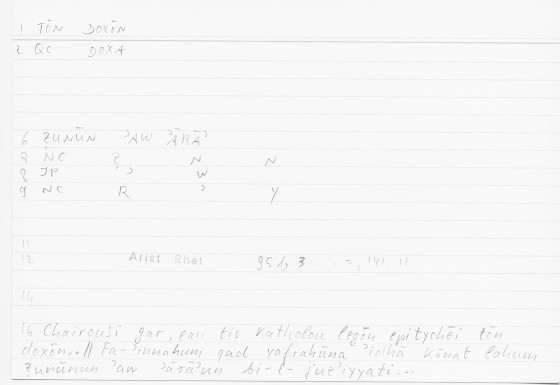 1 TŌN DOXŌN
2 QC DOXA
6 ẒUNŪN ʾAW ʾĀRĀʾ
7 NC Ẓ N N
8 JP ʾ W
9 NC R ʾ Y
11
12 Arist Rhet 95b 3 = , 141 11
14
16 Chairousi gar, ean tis katholou legōn epitychēi tōn
doxōn..// Fa-ʾinnahum qad yafraḥūna ʾidhā kānat lahum
ẓunūnun ʾaw ʾārāʾun bi-l-juzʾiyyati...